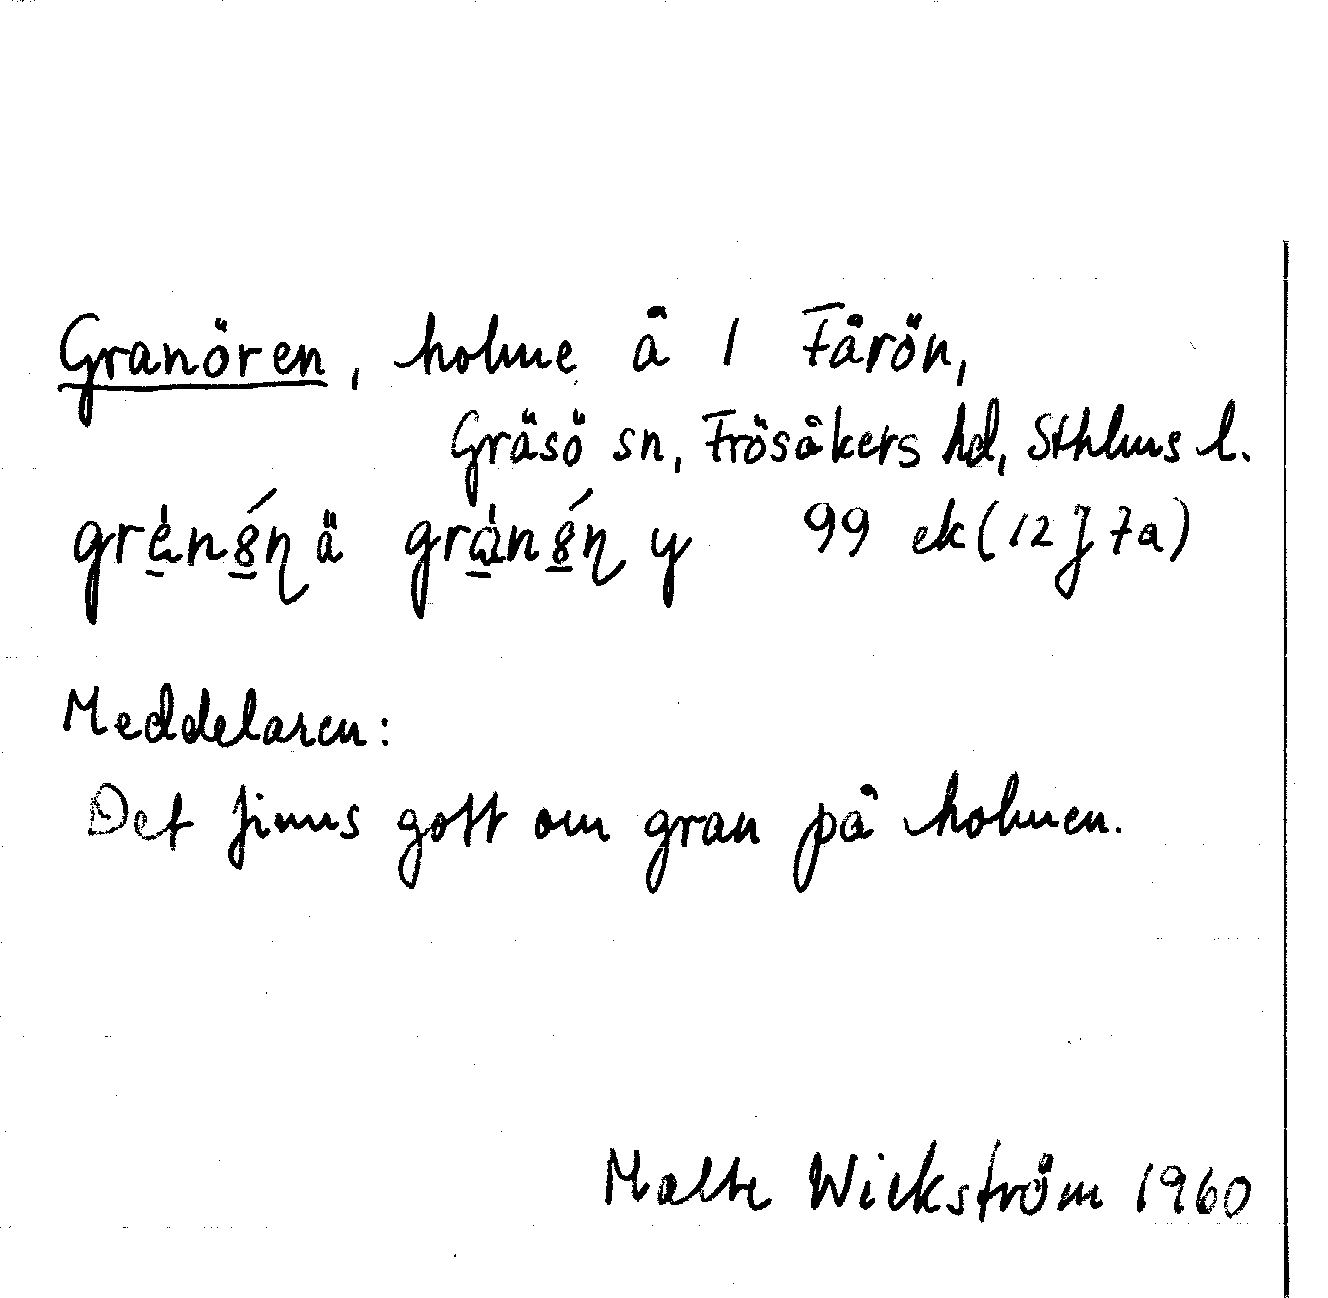 Granören, holme å 1 Fårön,
Gräsö sn, Frösåkers hd, Sthlms l.
ä y 99 ek (12 J 7a)
Meddelaren:
Det finns gott om gran på holmen.
Malte Wickström 1960